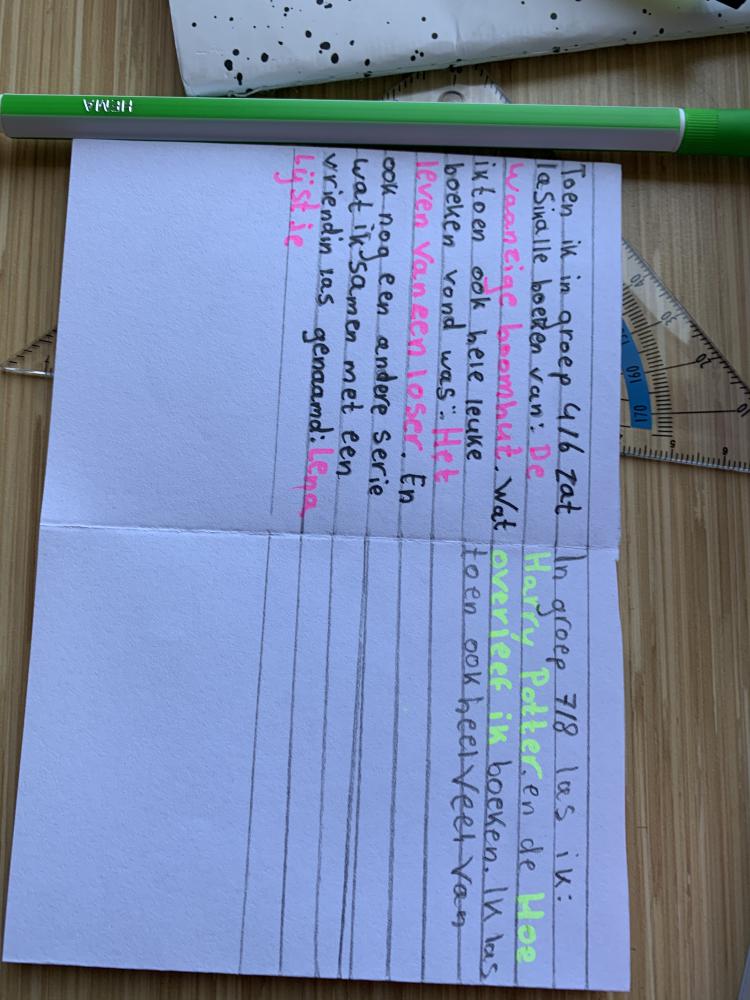 HEMA
Toen ik in groep 4/6 zat
las ik alle boeken van: De
waanzige boomhut. Wat
ik toen ook hele leuke
boeken vond was: Het
leven van een loser. En
ook nog een andere serie
wat ik samen met een
vriendin las genaamd: Lena
Lijstje
In groep 7/8 las ik:
Harry Potter. en de Hoe
overleef ik boeken. Ik las
toen ook heel veel van
40
30
20
10
160
170
5
5